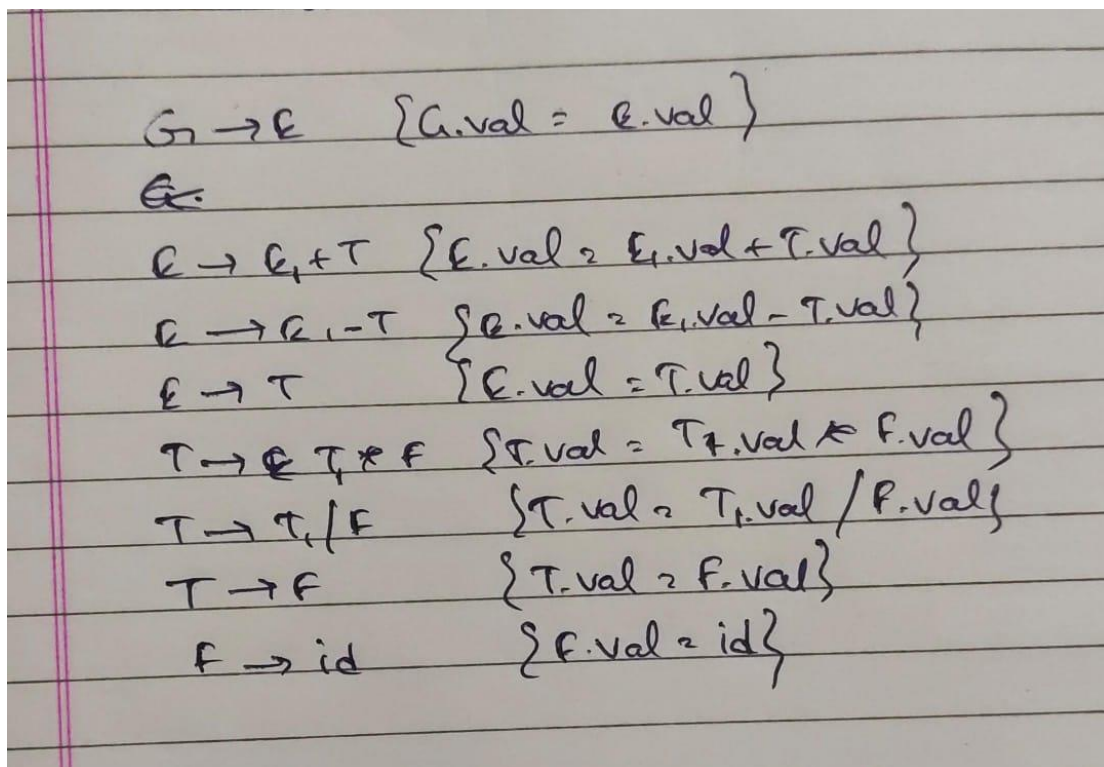 G → E {G.val = E.val}
E → E₁ + T {E.val = E₁.val + T.val}
E → E₁ - T {E.val = E₁.val - T.val}
E → T {E.val = T.val}
T → T₁ * F {T.val = T₁.val * F.val}
T → T₁ / F {T.val = T₁.val / F.val}
T → F {T.val = F.val}
F → id {F.val = id}